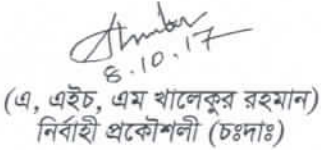 8.10.17
(এ, এইচ, এম খালেকুর রহমান)
নির্বাহী প্রকৌশলী (চঃদাঃ)